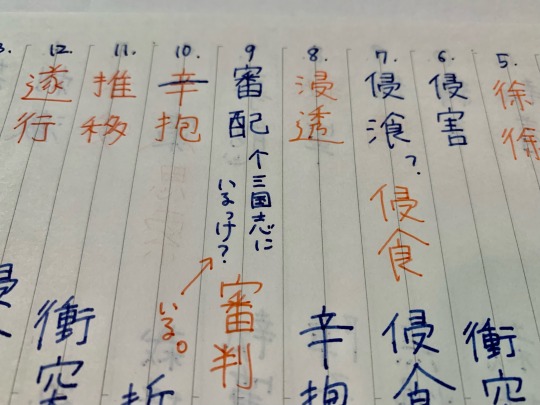 5.
徐徐
6.
侵害
7.
侵飡?
侵食
8.
浸透
9
審配
个三国志に
いるっけ?
いる。
審判
10.
辛抱
11.
推移
12.
遂行
衝突
侵食
辛抱
衝突